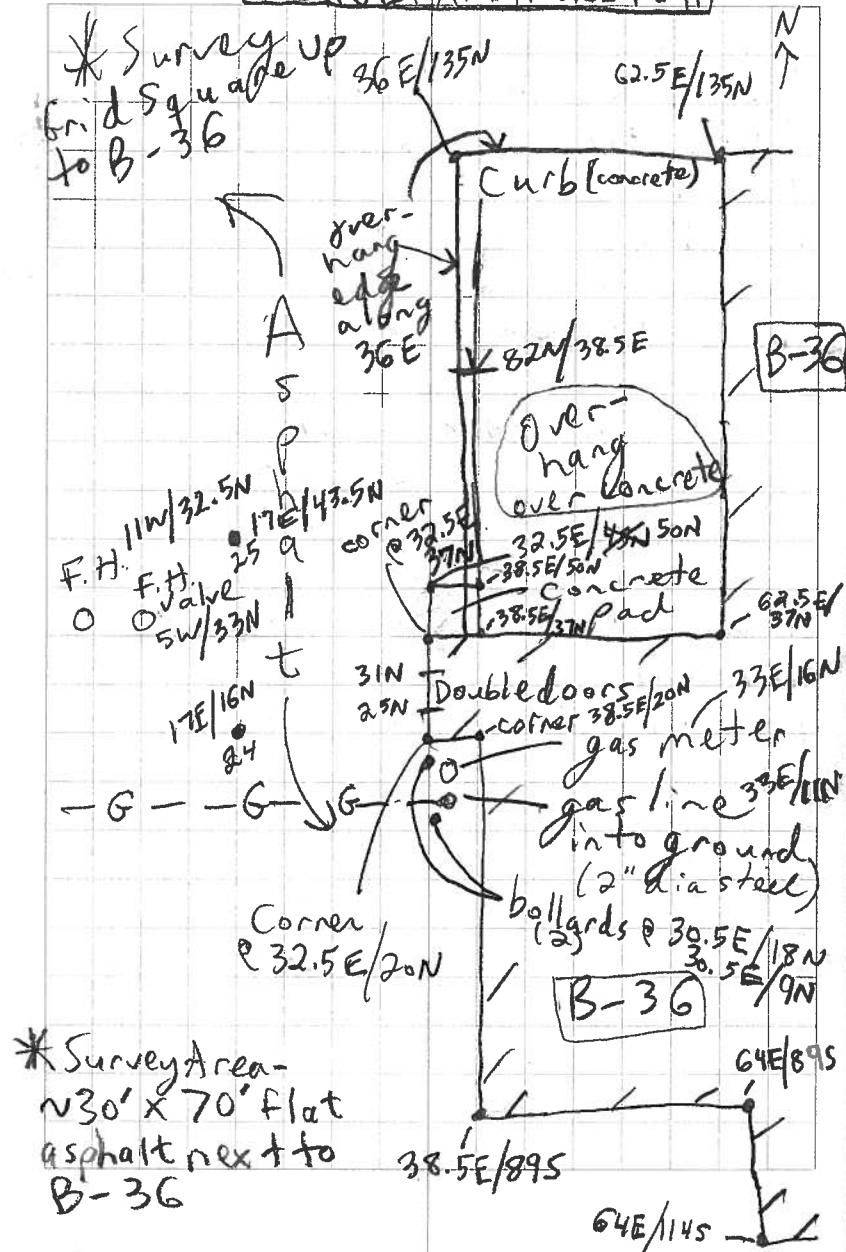 N
* Survey
Grid Square up
to B-36
36E/135N
62.5E/135N
Curb (concrete)
over-
hang
edge
along
36E
Asphalt
82N/38.5E
B-36
Over-
hang
over concrete
11W/32.5N
17E/43.5N
25
F.H.
F.H.
valve
5W/33N
corner
@ 32.5E
37N
32.5E/ 50N
38.5E/50N
concrete
pad
38.5E/37N
62.5E/
37N
31N
25N
Double doors
33E/16N
corner 38.5E/20N
gas meter
17E/16N
24
G G G
gas line 33E/11N
into ground
(2" dia steel)
bollards @ 30.5E/18N
(2)
30.5E/9N
Corner
@ 32.5E/20N
B-36
* Survey Area-
~30' x 70' flat
asphalt next to
B-36
64E/89S
38.5E/89S
64E/114S